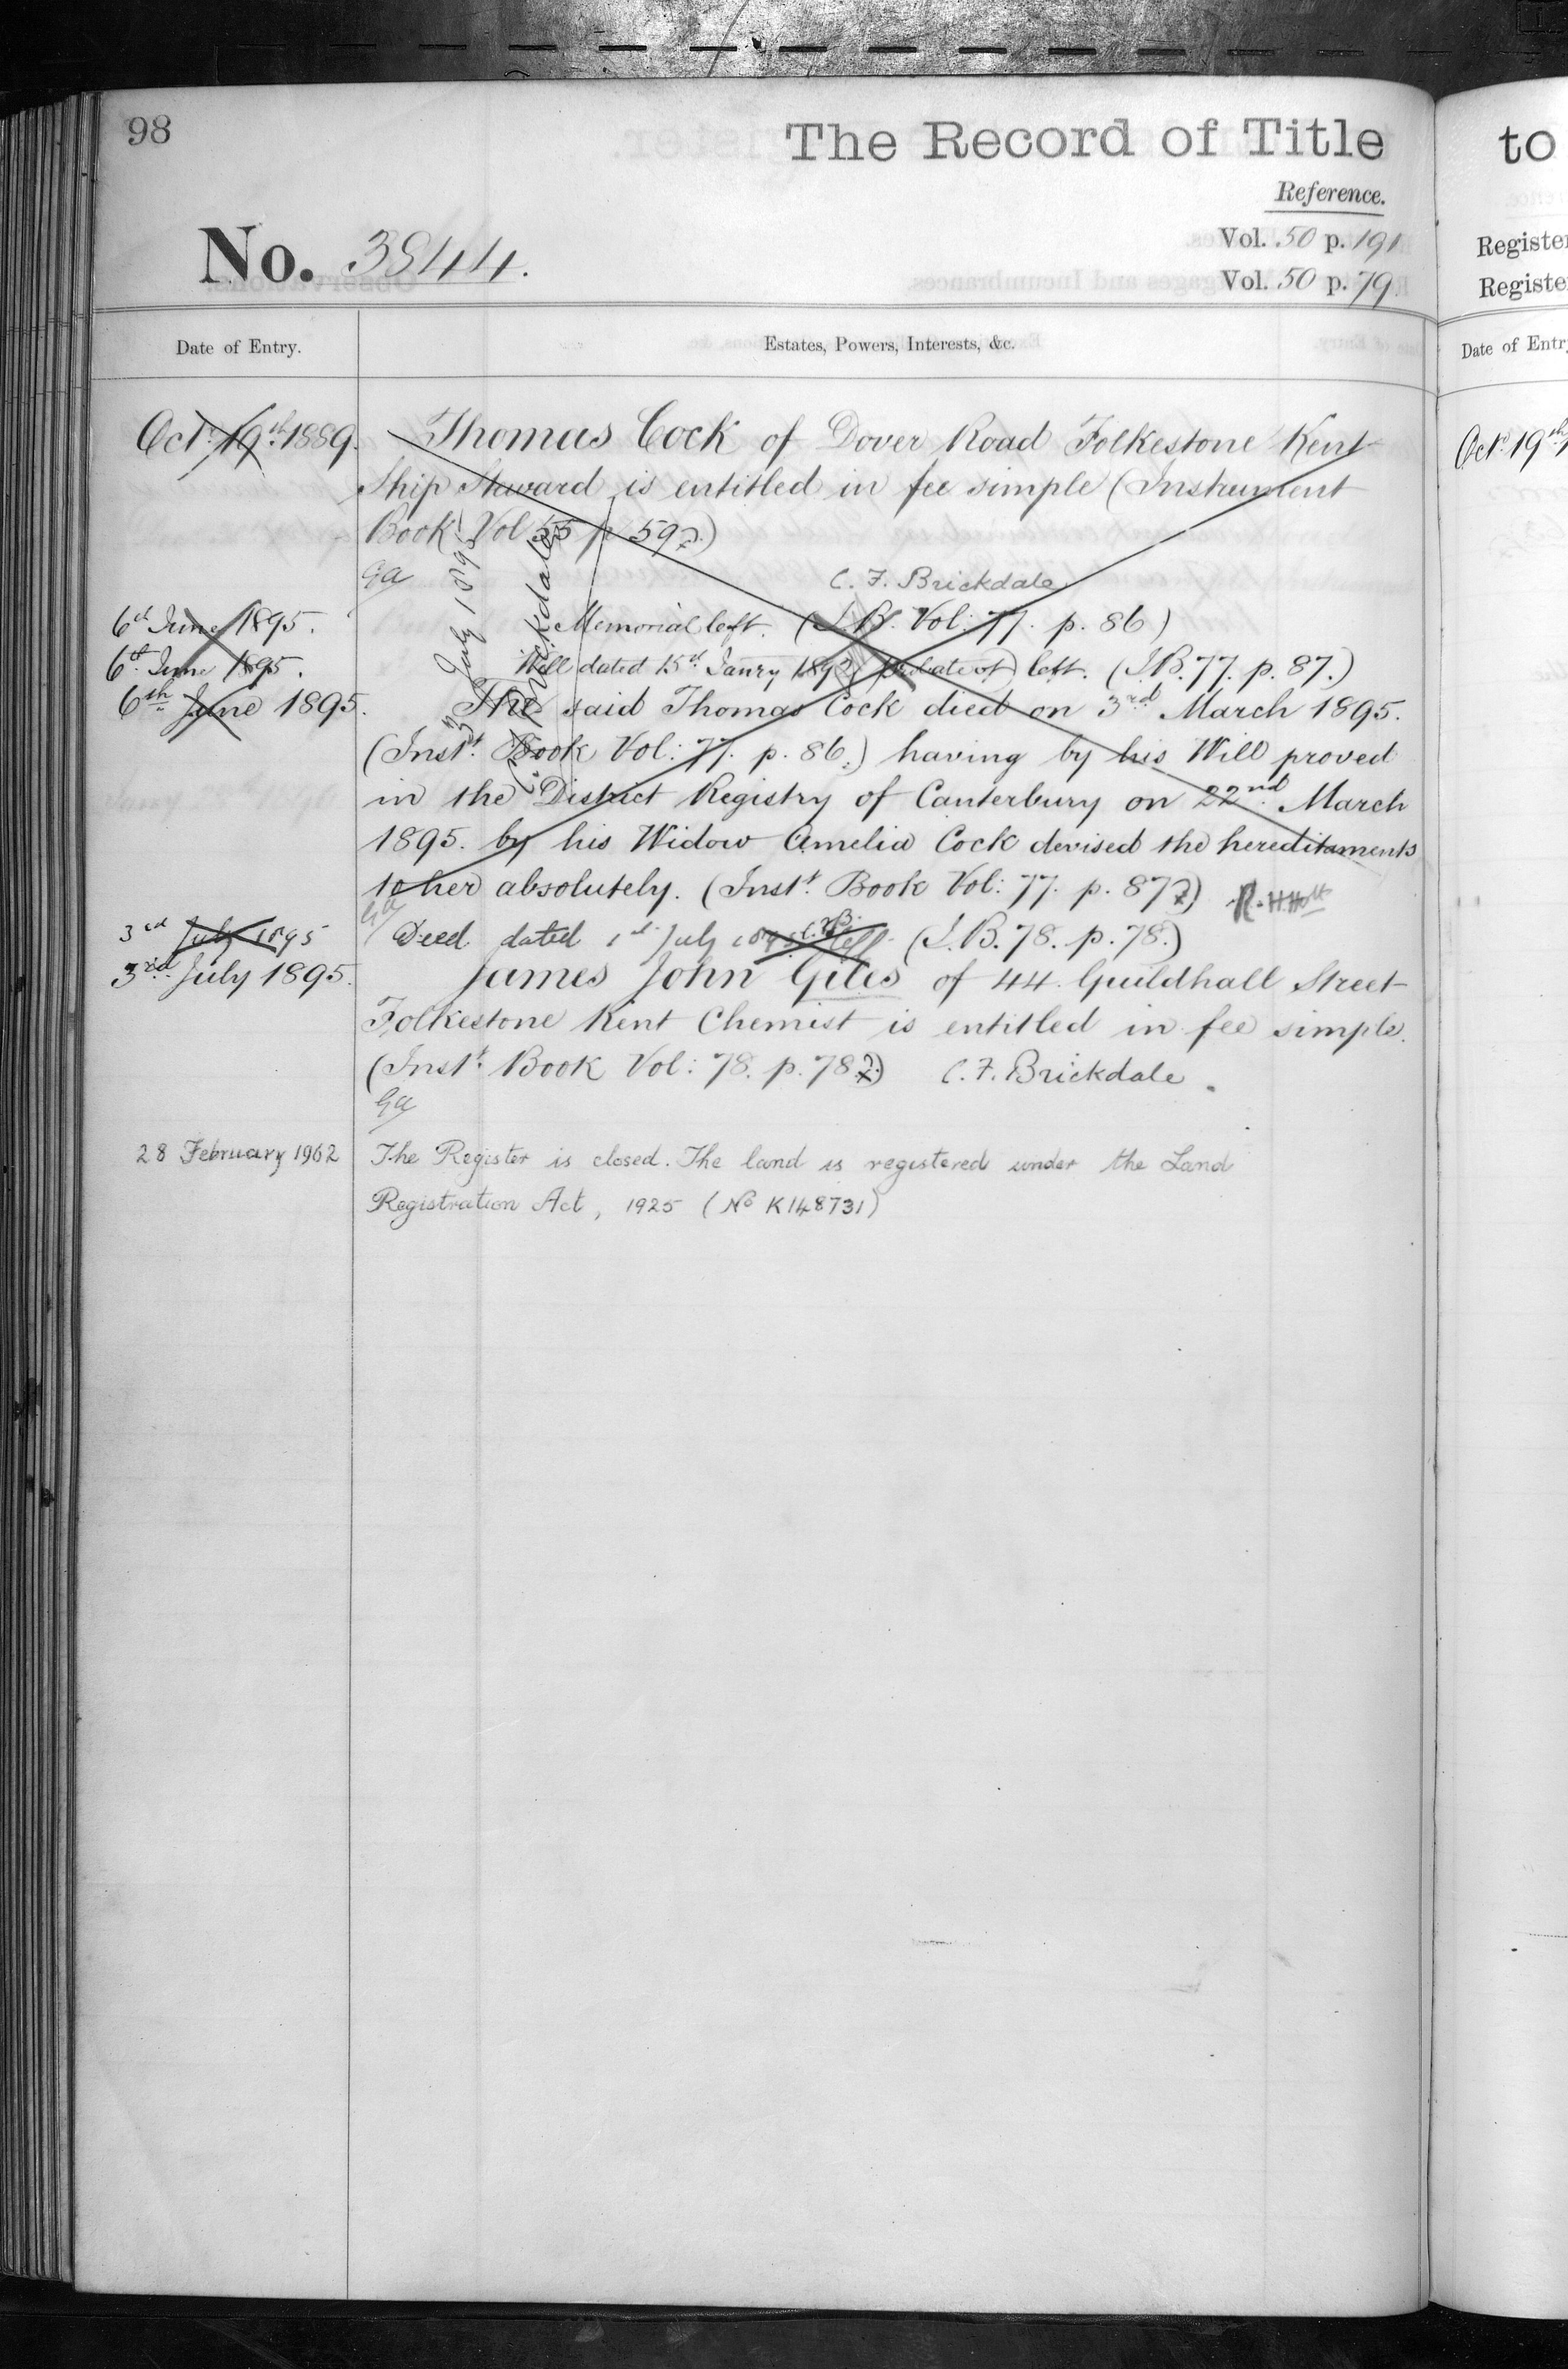 98
The Record of Title
to
Reference.
No. 3844.
Vol. 50 p. 191
Vol. 50 p. 79
Register
Registe
Date of Entry.
Estates, Powers, Interests, &c.
Date of Entr
Oct. 19th 1889.
Thomas Cock of Dover Road Folkestone Kent
Ship Steward is entitled in fee simple (Instrument
Book Vol 55 p. 59.)
Ga
C. F. Brickdale
3 July 1895
C. F. Brickdale
6th June 1895.
Memorial left. (I.B. Vol: 77. p. 86)
6th June 1895.
Will dated 15th Janry 1892 (Probate of) left. (I.B. 77. p. 87.)
6th June 1895.
The said Thomas Cock died on 3rd March 1895.
(Inst. Book Vol: 77. p. 86.) having by his Will proved
in the District Registry of Canterbury on 22nd March
1895. by his Widow Amelia Cock devised the hereditaments
to her absolutely. (Inst. Book Vol: 77. p. 87)
Ga
3rd July 1895
Deed dated 1st July 1895 left (I.B. 78. p. 78.)
3rd July 1895.
James John Giles of 44 Guildhall Street
Folkestone Kent Chemist is entitled in fee simple.
(Inst. Book Vol: 78. p. 78) C. F. Brickdale
Ga
28 February 1962
The Register is closed. The land is registered under the Land
Registration Act, 1925 (No K148731)
Oct. 19th 1